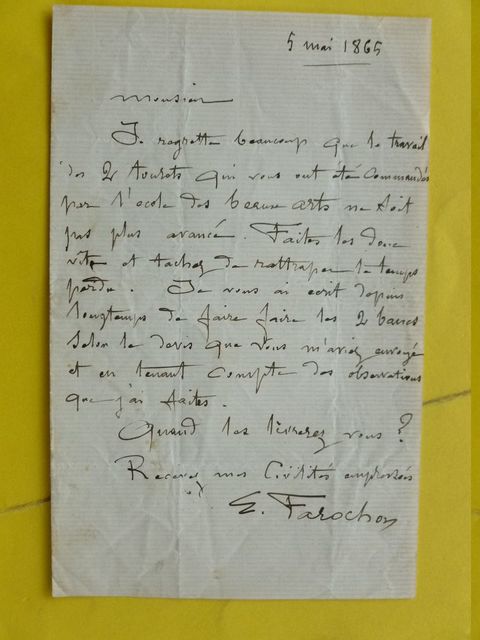 5 mai 1865
Monsieur
Je regrette beaucoup que le travail
des 2 tourets qui vous ont été commandés
par l'école des beaux arts ne soit
pas plus avancé. Faites les donc
vite et tachez de rattraper le temps
perdu. Je vous ai ecrit depuis
longtemps de faire faire les 2 bancs
selon le devis que vous m'aviez envoyé
et en tenant compte des observations
que j'ai faites.
Quand les livrerez vous ?
Recevez mes Civilités empressées
E. Farochon